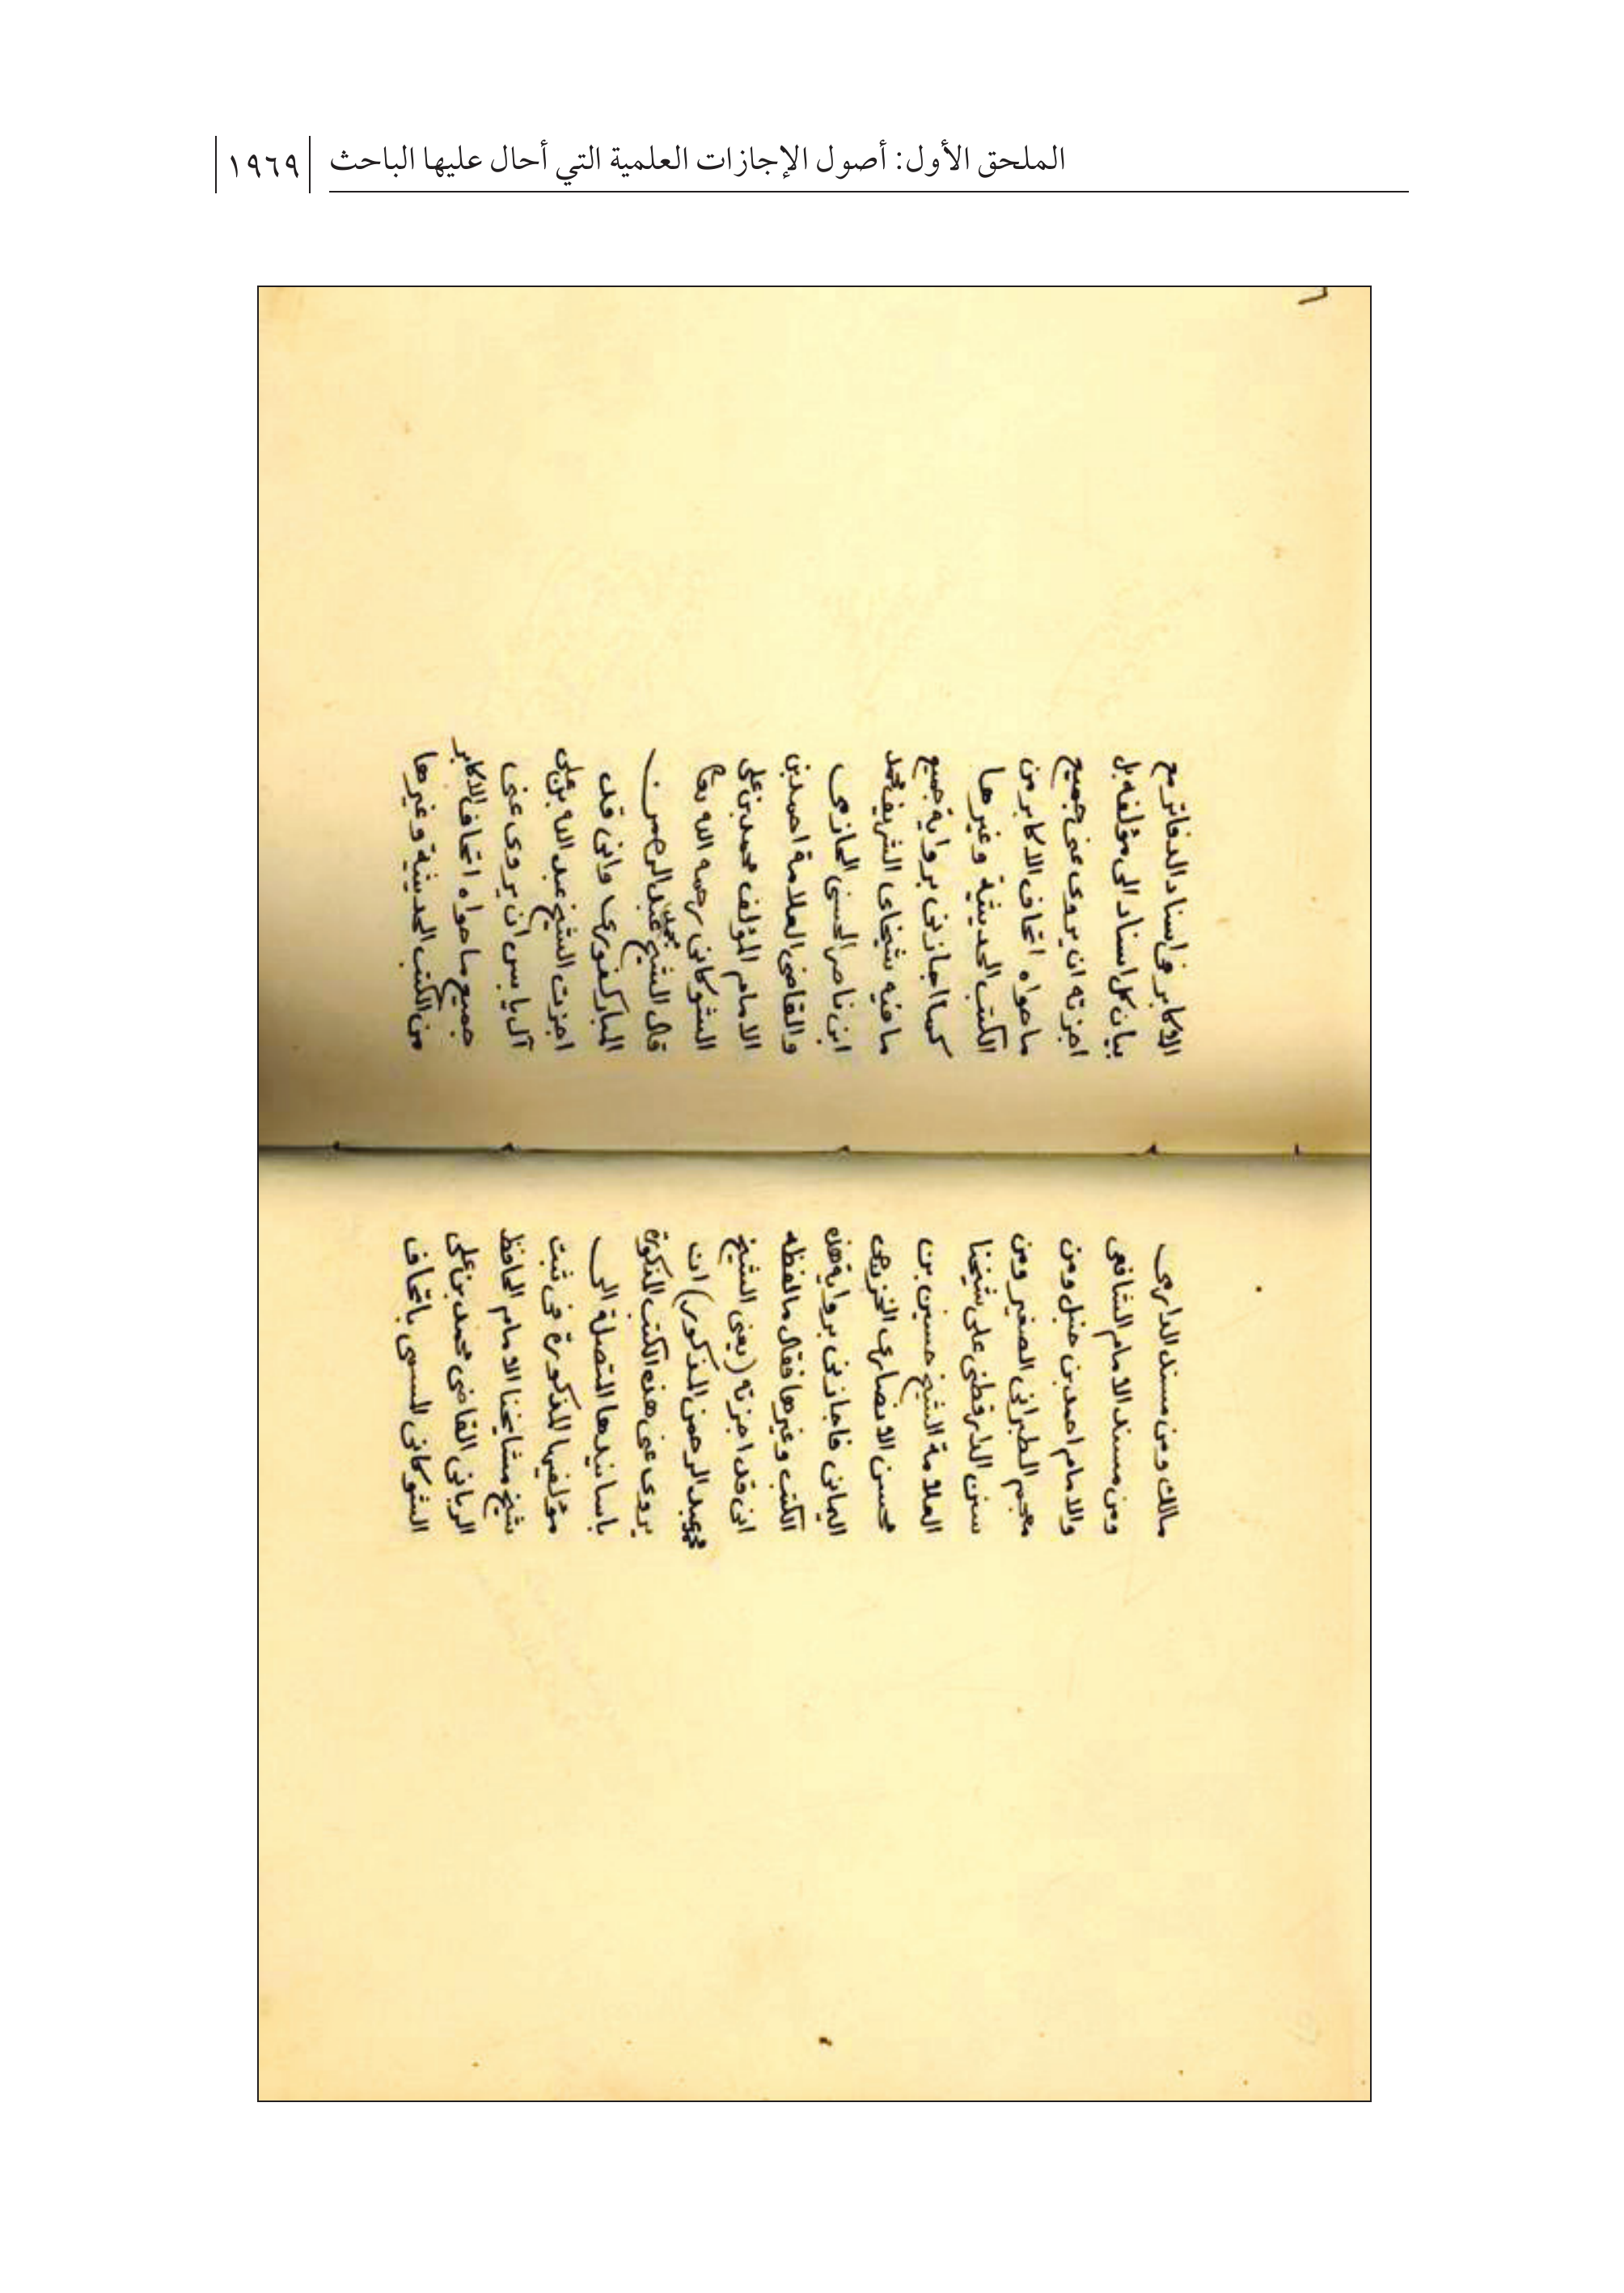 الملحق الأول: أصول الإجازات العلمية التي أحال عليها الباحث ١٩٦٩
مالك ومن مسند الدارمى
ومن مسند الامام الشافعى
والامام احمد بن حنبل ومن
معجم الطبرانى الصغير ومن
سنن الدارقطنى على شيخنا
العلامة الشيخ حسين بن
محسن الانصارى الخزرجى
اليمانى فاجازنى برواية هذه
الكتب وغيرها فقال ما لفظه
انى قد اجزته (يعنى الشيخ
محمد عبد الرحمن المذكور) ان
يروى عنى هذه الكتب المذكورة
باسانيدها المتصلة الى
مؤلفيها المذكورة فى ثبت
شيخ مشايخنا الامام الحافظ
الربانى القاضى محمد بن على
الشوكانى المسمى باتحاف
الاكابر فى اسناد الدفاتر مع
بيان كل اسناد الى مؤلفه بل
اجزته ان يروى عنى جميع
ما حواه اتحاف الاكابر من
الكتب الحديثية وغيرها
كما اجازنى برواية جميع
ما فيه شيخاى الشريف محمد
ابن ناصر الحسنى الحازمى
والقاضى العلامة احمد بن
الامام المؤلف محمد بن على
الشوكانى رحمه الله
قال الشيخ محمد عبد الرحمن
المباركفورى وانى قد
اجزت الشيخ عبد الله بن على
آل يابس ان يروى عنى
جميع ما حواه اتحاف الاكابر
من الكتب الحديثية وغيرها